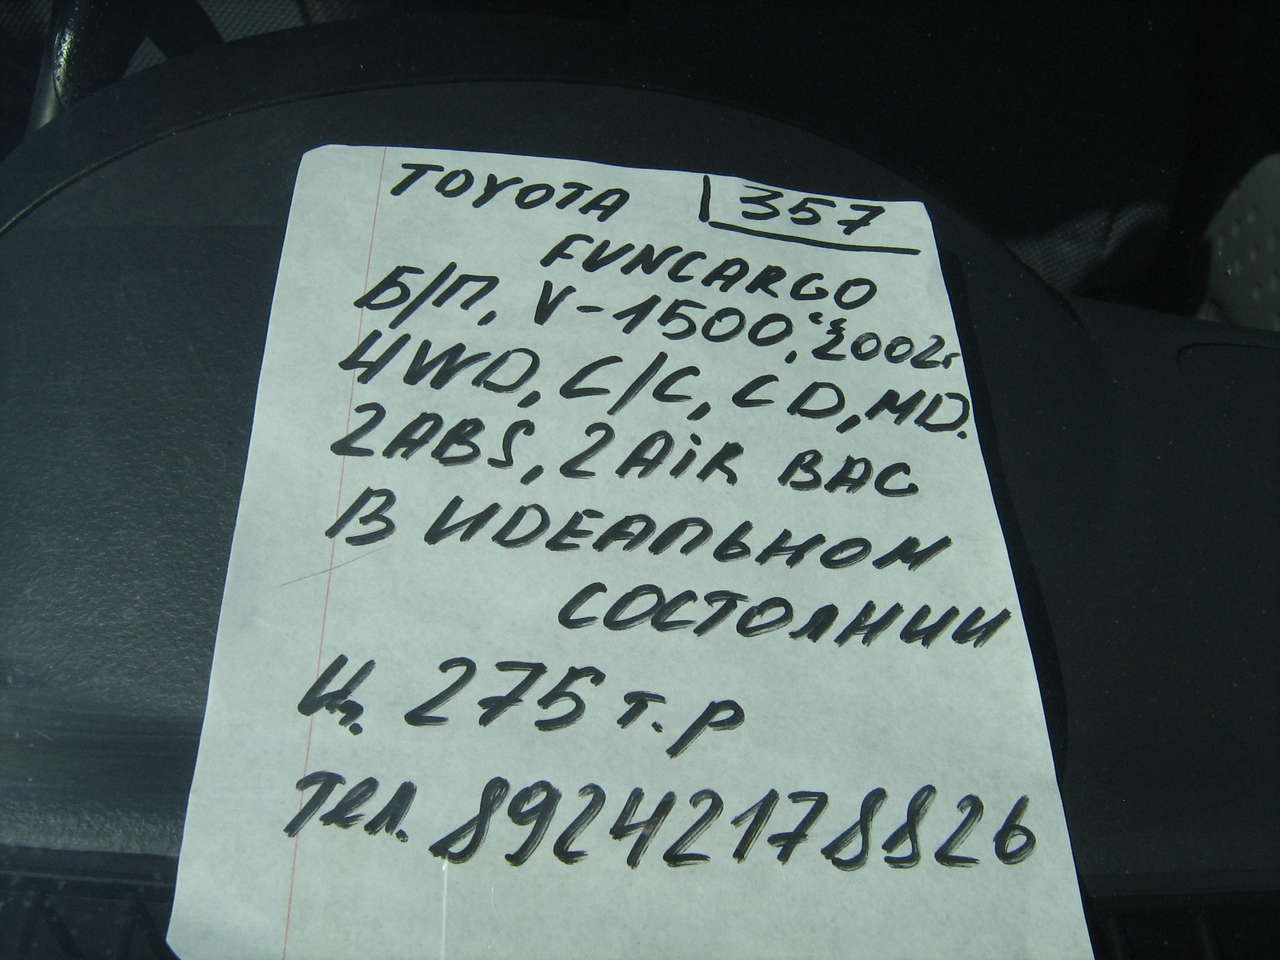 TOYOTA 357
FUNCARGO
Б/П, V-1500, 2002г
4WD, C/C, CD, MD.
2ABS, 2AiR BAG
В ИДЕАЛЬНОМ
СОСТОЯНИИ
Ц. 275 т.р
Тел. 89242178826